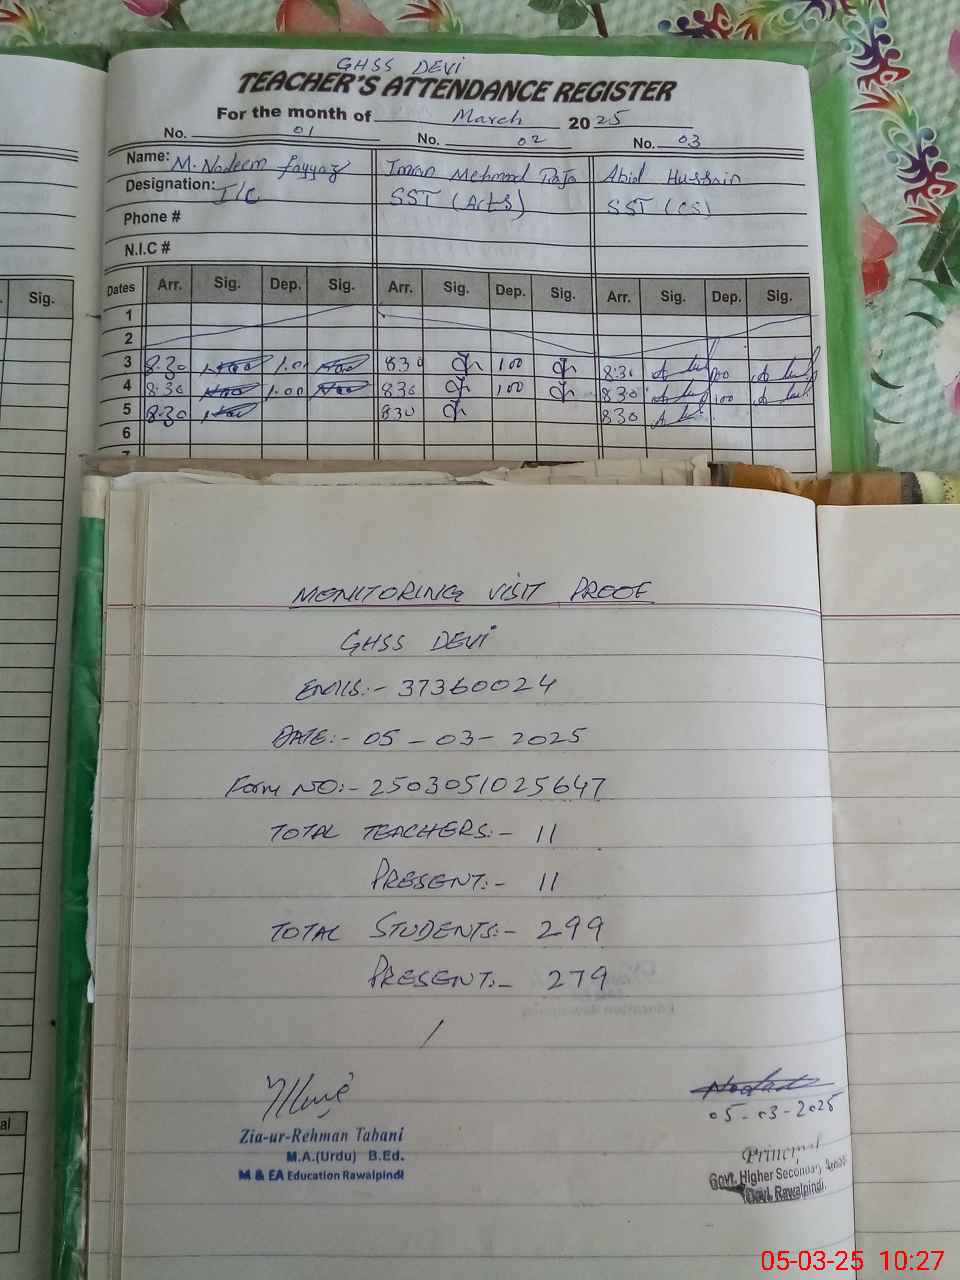 GHSS DEVI
TEACHER'S ATTENDANCE REGISTER
For the month of March 2025
No. 01 No. 02 No. 03
Name: M. Nadeem Fayyaz Iman Mehmood Raja Abid Hussain
Designation: I/C SST (Arts) SST (CS)
Phone #
N.I.C #
Sig.
Dates Arr. Sig. Dep. Sig. Arr. Sig. Dep. Sig. Arr. Sig. Dep. Sig.
1
2
3 8:30 1.00 830 100 8:30
4 8:30 1:00 830 100 8:30 100
5 8:30 830 830
6
MONITORING VISIT PROOF
GHSS DEVI
EMIS:- 37360024
DATE:- 05-03-2025
Form NO:- 2503051025647
TOTAL TEACHERS:- 11
PRESENT:- 11
TOTAL STUDENTS:- 299
PRESENT:- 279
05-03-2025
Zia-ur-Rehman Tabani
M.A.(Urdu) B.Ed.
M & EA Education Rawalpindi
Principal
Govt. Higher Secondary School
Devi, Rawalpindi.
05-03-25 10:27